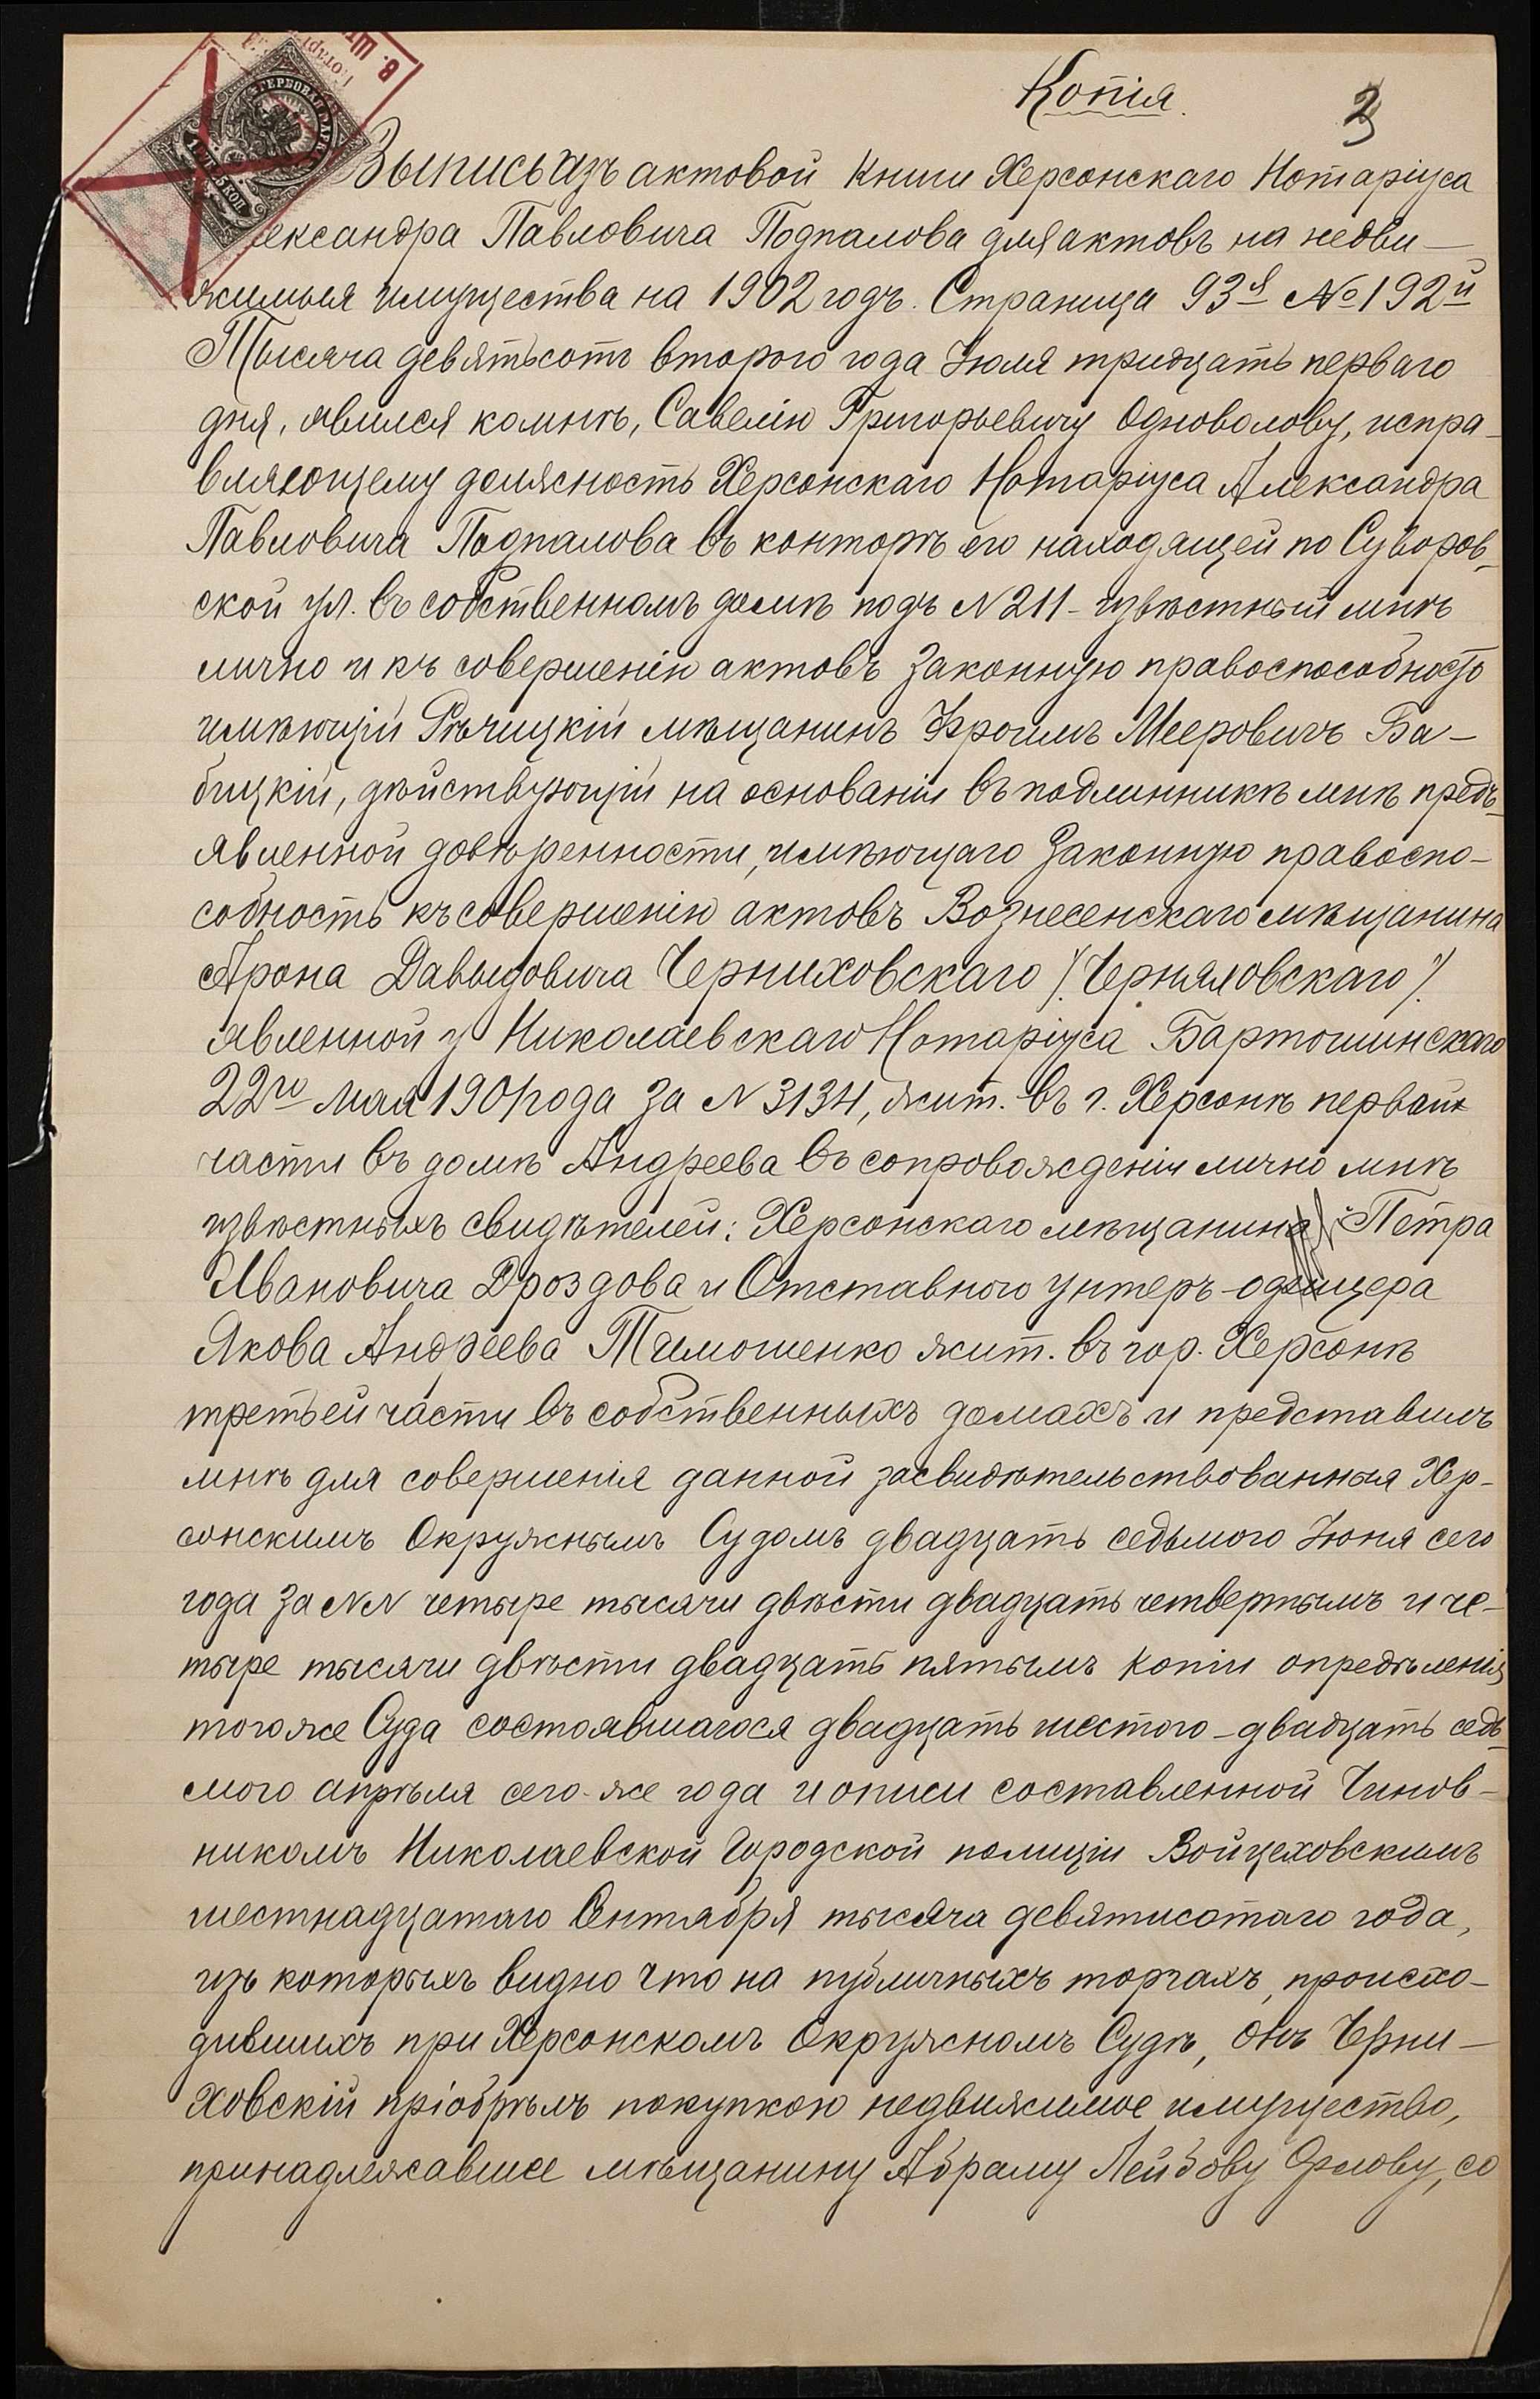 Копія.
2
Выпись изъ актовой книги Херсонскаго Нотаріуса
ександра Павловича Подпалова для актовъ на недви-
жимыя имущества на 1902 годъ. Страница 93я №192й
Тысяча девятьсотъ второго года Іюля тридцать перваго
дня, явился ко мнѣ, Савелію Григорьевичу Одноволову, испра-
вляющему должность Херсонскаго Нотаріуса Александра
Павловича Подпалова въ конторѣ его находящей по Суворов-
ской ул. въ собственномъ домѣ подъ N211 - извѣстный мнѣ
лично и къ совершенію актовъ законную правоспособность
имѣющій Рѣчицкій мѣщанинъ Фроимъ Мееровичъ Ба-
бицкій, дѣйствующій на основаніи въ подлинникѣ мнѣ предъ-
явленной довѣренности, имѣющаго законную правоспо-
собность къ совершенію актовъ Вознесенскаго мѣщанина
Арона Давыдовича Черниховскаго /.Черняховскаго./
явленной у Николаевскаго Нотаріуса Бартошинскаго
22го мая 1901 года за N 3134, жит. въ г. Херсонѣ первой
части въ домѣ Андреева въ сопровожденіи лично мнѣ
извѣстныхъ свидѣтелей: Херсонскаго мѣщанина Петра
Ивановича Дроздова и Отставного унтеръ-офицера
Якова Андреева Тимошенко жит. въ гор. Херсонѣ
третьей части въ собственныхъ домахъ и представилъ
мнѣ для совершенія данной засвидѣтельствованныя Хер-
сонскимъ Окружнымъ Судомъ двадцать седьмого Іюня сего
года за NN четыре тысячи двѣсти двадцать четвертымъ и че-
тыре тысячи двѣсти двадцать пятымъ копіи опредѣленія
того же Суда состоявшагося двадцать шестого - двадцать седь-
мого апрѣля сего-же года и описи составленной Чинов-
никомъ Николаевской Городской полиціи Войцеховскимъ
шестнадцатаго Сентября тысяча девятисотаго года,
изъ которыхъ видно что на публичныхъ торгахъ, происхо-
дившихъ при Херсонскомъ Окружномъ Судѣ, онъ Черни-
ховскій пріобрѣлъ покупкою недвижимое имущество,
принадлежавшее мѣщанину Абраму Лейбову Орлову, со